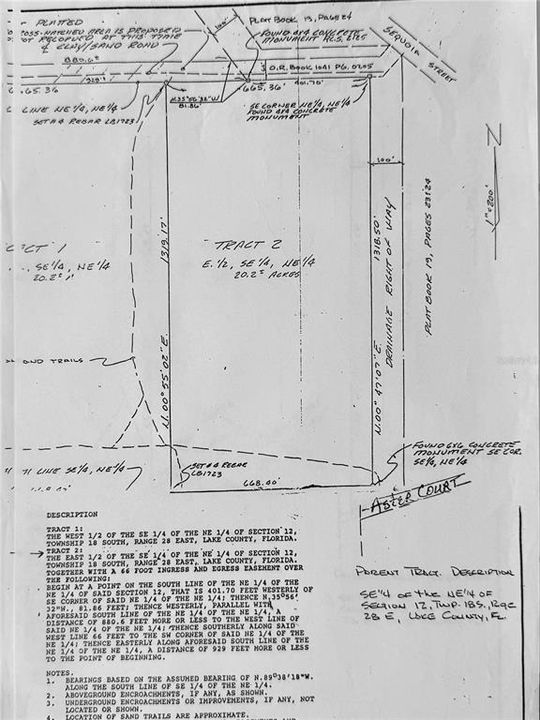 PLATTED
CROSS-HATCHED AREA IS PROPOSED
NOT RECORDED AT THIS TIME
& CLAY/SAND ROAD
PLAT BOOK 13, PAGE 24
FOUND 4X4 CONCRETE
MONUMENT
SEQUOIA STREET
100'
880.6'
929'
O.R. BOOK 1041 PG. 0205
401.70'
665.36
665.36'
81.86'
LINE NE 1/4, NE 1/4
SET #4 REBAR LB1723
SE CORNER NE 1/4, NE 1/4
FOUND 4X4 CONCRETE
MONUMENT
100'
N
1"=200'
1319.17'
N.00° 55' 02" E.
TRACT 2
E. 1/2, SE 1/4, NE 1/4
20.2± ACRES
1318.50'
N.00° 47' 07" E.
DRAINAGE RIGHT OF WAY
PLAT BOOK 13, PAGES 23 & 24
CT 1
SE 1/4, NE 1/4
20.2±
AND TRAILS
LINE SE 1/4, NE 1/4
SET #4 REBAR
LB1723
668.00'
FOUND 6X6 CONCRETE
MONUMENT SE COR.
SE 1/4, NE 1/4
ASTER COURT
DESCRIPTION
TRACT 1:
THE WEST 1/2 OF THE SE 1/4 OF THE NE 1/4 OF SECTION 12,
TOWNSHIP 18 SOUTH, RANGE 28 EAST, LAKE COUNTY, FLORIDA.
TRACT 2:
THE EAST 1/2 OF THE SE 1/4 OF THE NE 1/4 OF SECTION 12,
TOWNSHIP 18 SOUTH, RANGE 28 EAST, LAKE COUNTY, FLORIDA.
TOGETHER WITH A 66 FOOT INGRESS AND EGRESS EASEMENT OVER
THE FOLLOWING:
BEGIN AT A POINT ON THE SOUTH LINE OF THE NE 1/4 OF THE
NE 1/4 OF SAID SECTION 12, THAT IS 401.70 FEET WESTERLY OF
SE CORNER OF SAID NE 1/4 OF THE NE 1/4; THENCE N.35°56'
32"W., 81.86 FEET; THENCE WESTERLY, PARALLEL WITH
AFORESAID SOUTH LINE OF THE NE 1/4 OF THE NE 1/4, A
DISTANCE OF 880.6 FEET MORE OR LESS TO THE WEST LINE OF
SAID NE 1/4 OF THE NE 1/4; THENCE SOUTHERLY ALONG SAID
WEST LINE 66 FEET TO THE SW CORNER OF SAID NE 1/4 OF THE
NE 1/4; THENCE EASTERLY ALONG AFORESAID SOUTH LINE OF THE
NE 1/4 OF THE NE 1/4, A DISTANCE OF 929 FEET MORE OR LESS
TO THE POINT OF BEGINNING.
NOTES.
1. BEARINGS BASED ON THE ASSUMED BEARING OF N.89°38'18"W.
ALONG THE SOUTH LINE OF SE 1/4 OF THE NE 1/4.
2. ABOVEGROUND ENCROACHMENTS, IF ANY, AS SHOWN.
3. UNDERGROUND ENCROACHMENTS OR IMPROVEMENTS, IF ANY, NOT
LOCATED OR SHOWN.
4. LOCATION OF SAND TRAILS ARE APPROXIMATE.
PARENT TRACT. DESCRIPTION
SE'4 OF THE NE'4 OF
SECTION 12, TWP. 18S, RGE
28 E, LAKE COUNTY, FL.